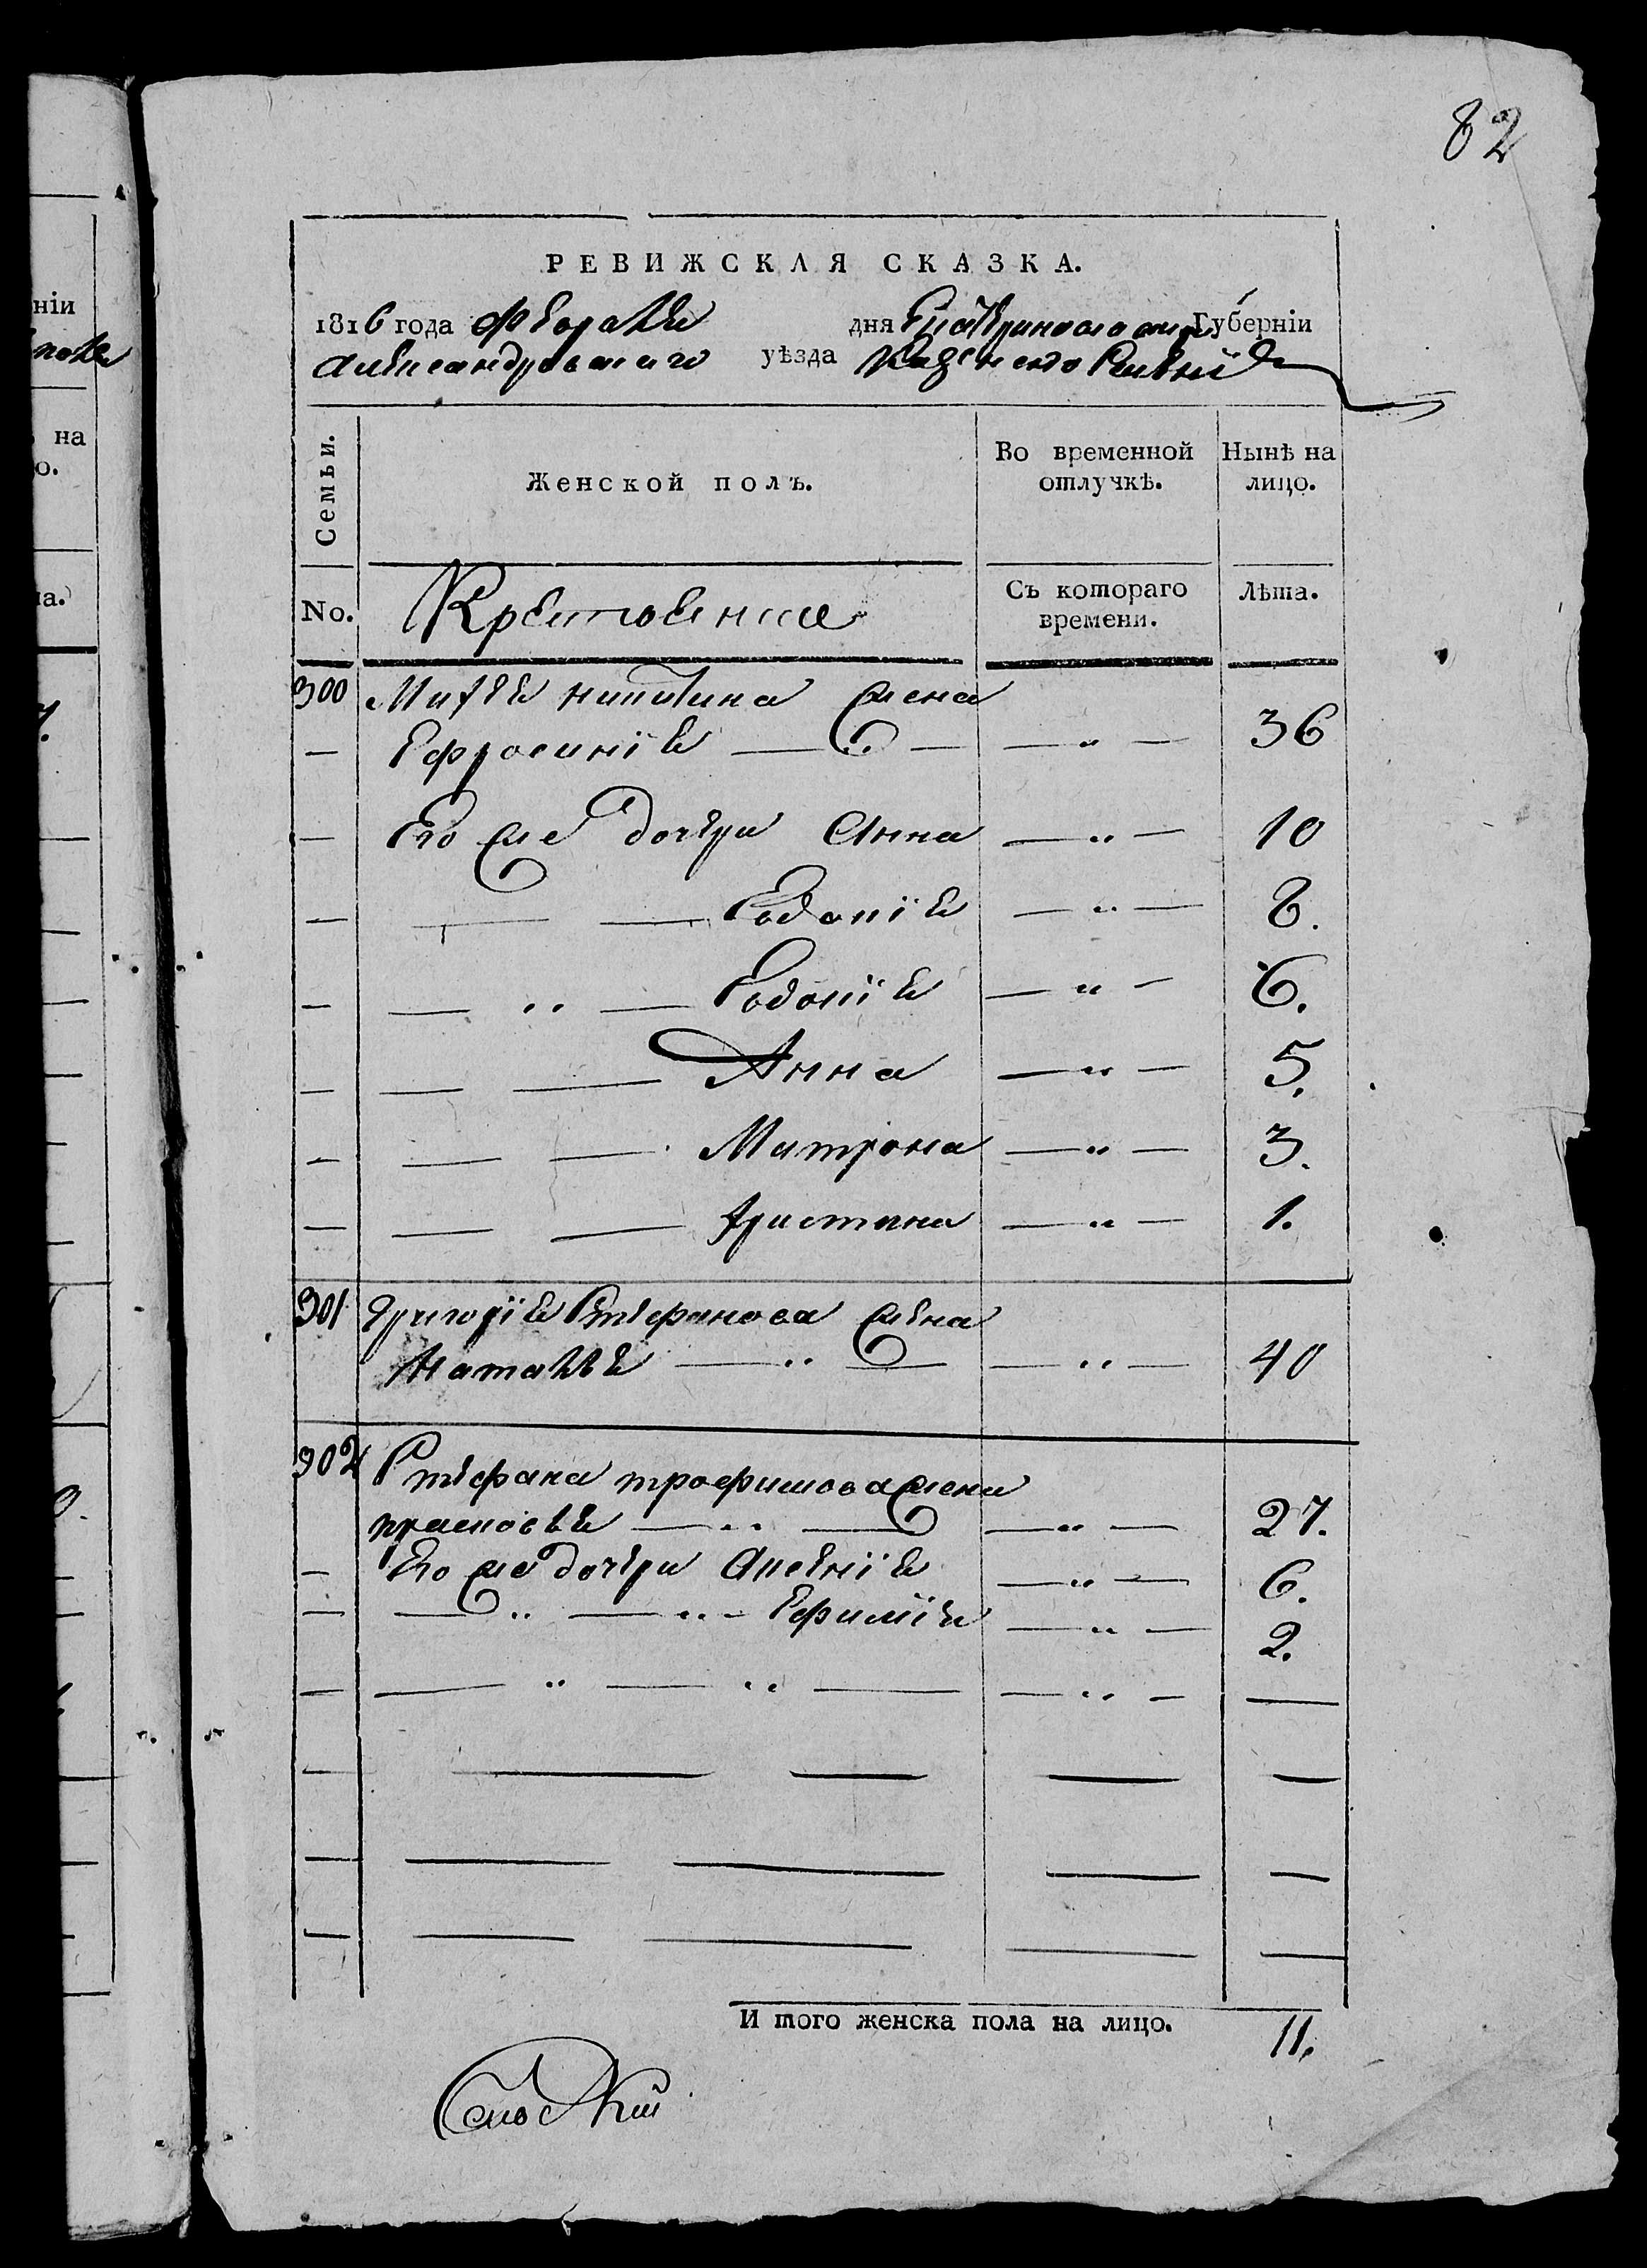 82
РЕВИЖСКАЯ СКАЗКА.
1816 года Февраля дня Екатеринославской Губерніи
Александровскаго уѣзда Казенного Селенія
Семьи.
Женской полъ.
Во временной отлучкѣ.
Нынѣ на лицо.
No.
Крестьянские
Съ котораго времени.
Лѣта.
300 Михея никитина жена
Ефросинія 36
Его же дочери Анна 10
Евдокія 8.
Евдокія 6.
Анна 5.
Матрона 3.
Христина 1.
301 Григорія Стефанова жена
Наталья 40
302 Стефана трофимова жена
прасковья 27.
Его же дочери Ксенія 6.
Ефимія 2.
И того женска пола на лицо. 11.
ніи
на
о.
та.